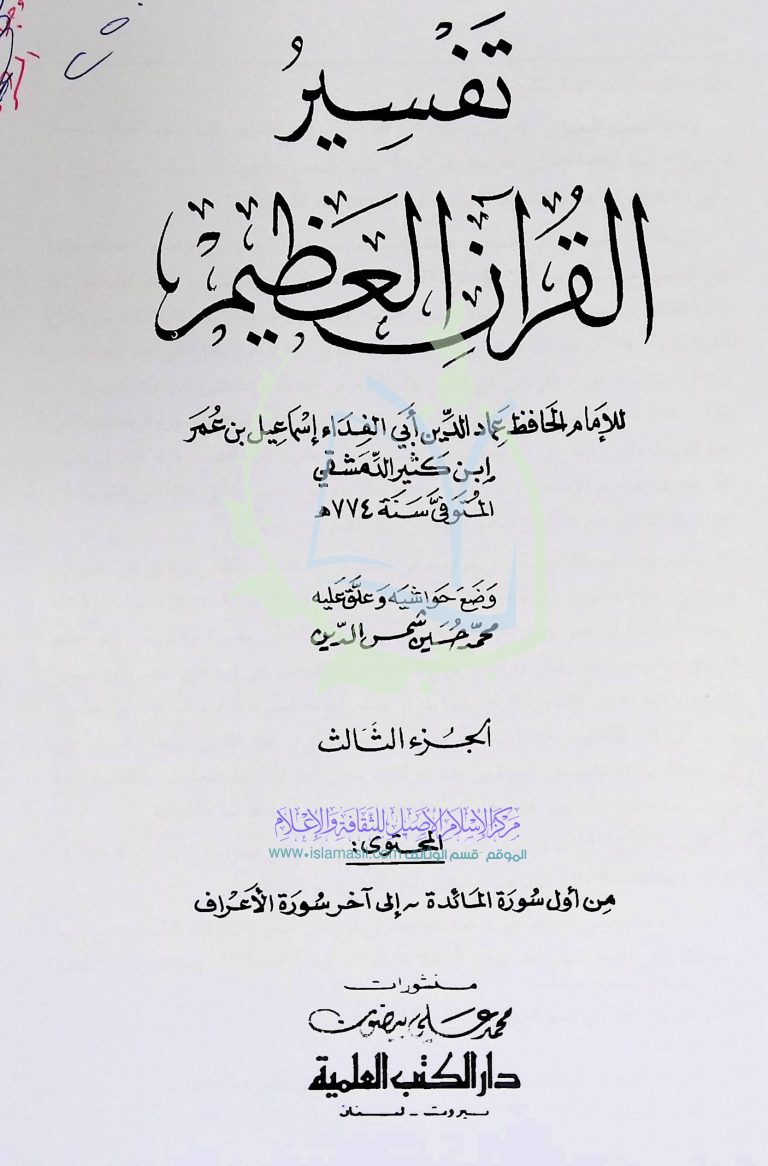 تَفْسِيرُ
القُرآنِ العَظِيم
للإمَام الحَافظ عِمَاد الدِّين أبي الفِدَاء إسْمَاعِيل بن عُمَر
إبن كَثِير الدِّمَشقي
المُتَوَفّى سَنَة ٧٧٤ ه
وَضَعَ حَوَاشيَه وَعَلَّق عَليه
محمّد حُسَين شَمس الدّين
الجُزء الثَالث
مركز الإسلام الأصيل للثقافة والإعلام
المحتوى:
الموقع - قسم الوثائق www.islamasil.com
مِن أول سُورَة المَائدة - إلى آخر سُورَة الأعرَاف
منشورات
محمد علي بيضون
دار الكتب العلمية
بيروت - لبنان